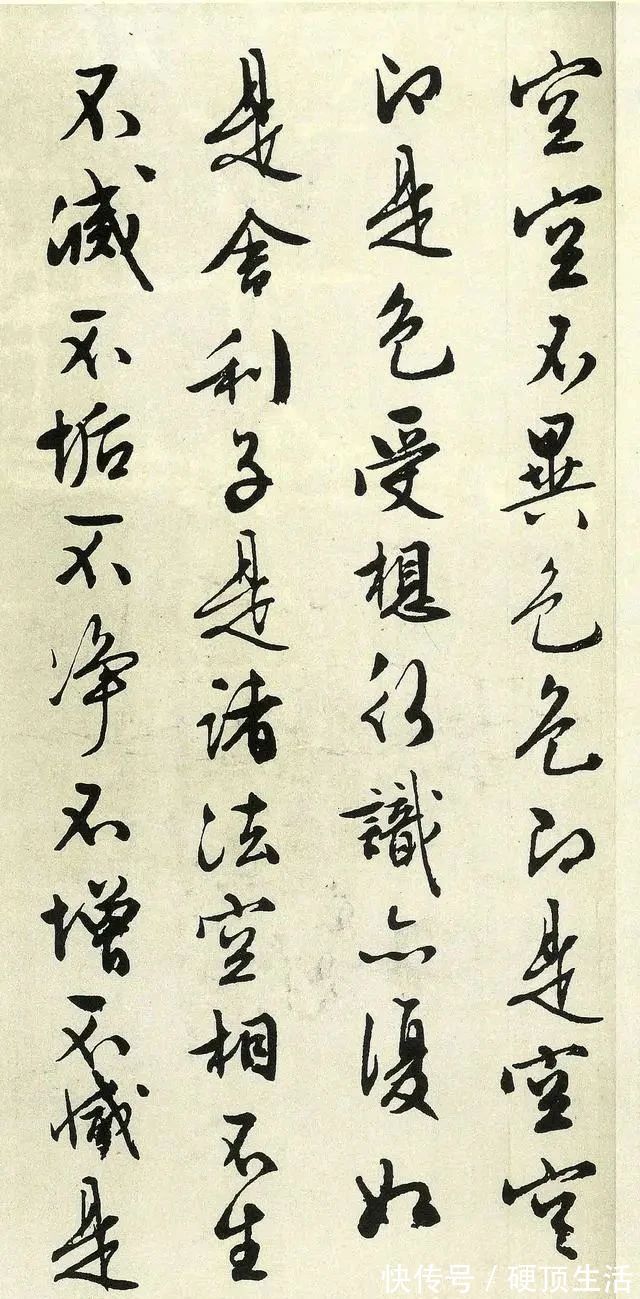 空空不異色色即是空空
即是色受想行識亦復如
是舍利子是諸法空相不生
不滅不垢不净不增不減是
快传号 / 硬顶生活